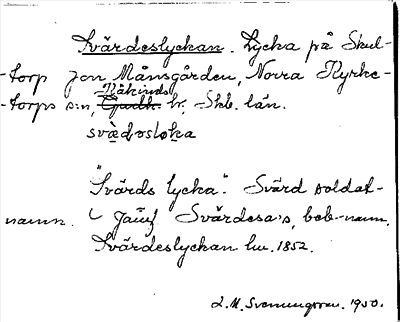 Svärdeslyckan. Lycka på Skul-
-torp Jon Månsgården, Norra Kyrke-
Kåkinds
-torps s:n, Gudh. hr, Skb. län.
svæ̀dəsløka
"Svärds lycka". Svärd soldat-
namn. Jämf Svärdesa's, beb-namn.
Svärdeslyckan lm. 1852.
L. M. Svenungsson. 1950.